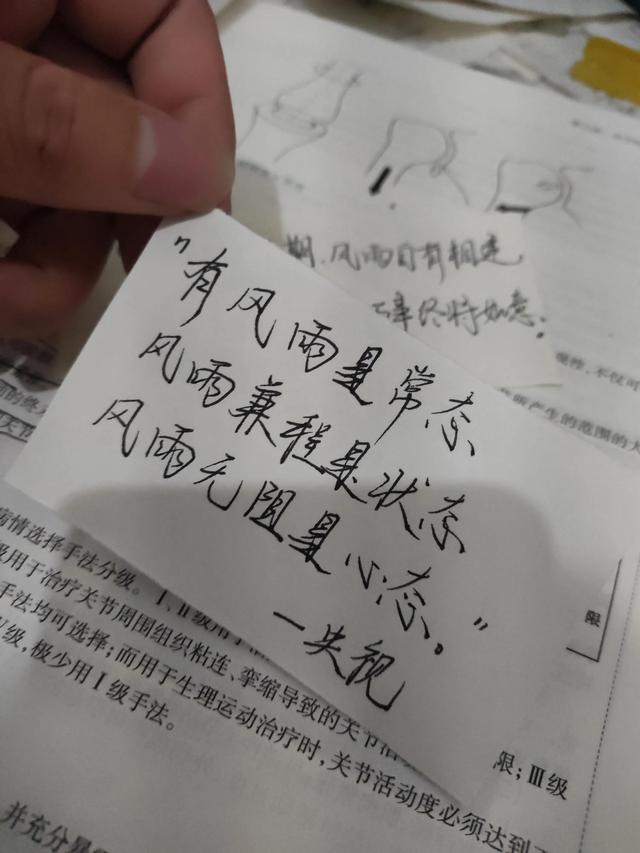 期.风雨自有相逢
终将如愿.
"有风雨是常态
风雨兼程是状态
风雨无阻是心态。"
一央视
病情选择手法分级。
级用于治疗关节周围组织粘连、挛缩导致的关节活
手法均可选择;而用于生理运动治疗时,关节活动度必须达到
级,极少用Ⅰ级手法。
限
限;Ⅲ级
所产生的范围的大
不仅可
并充分